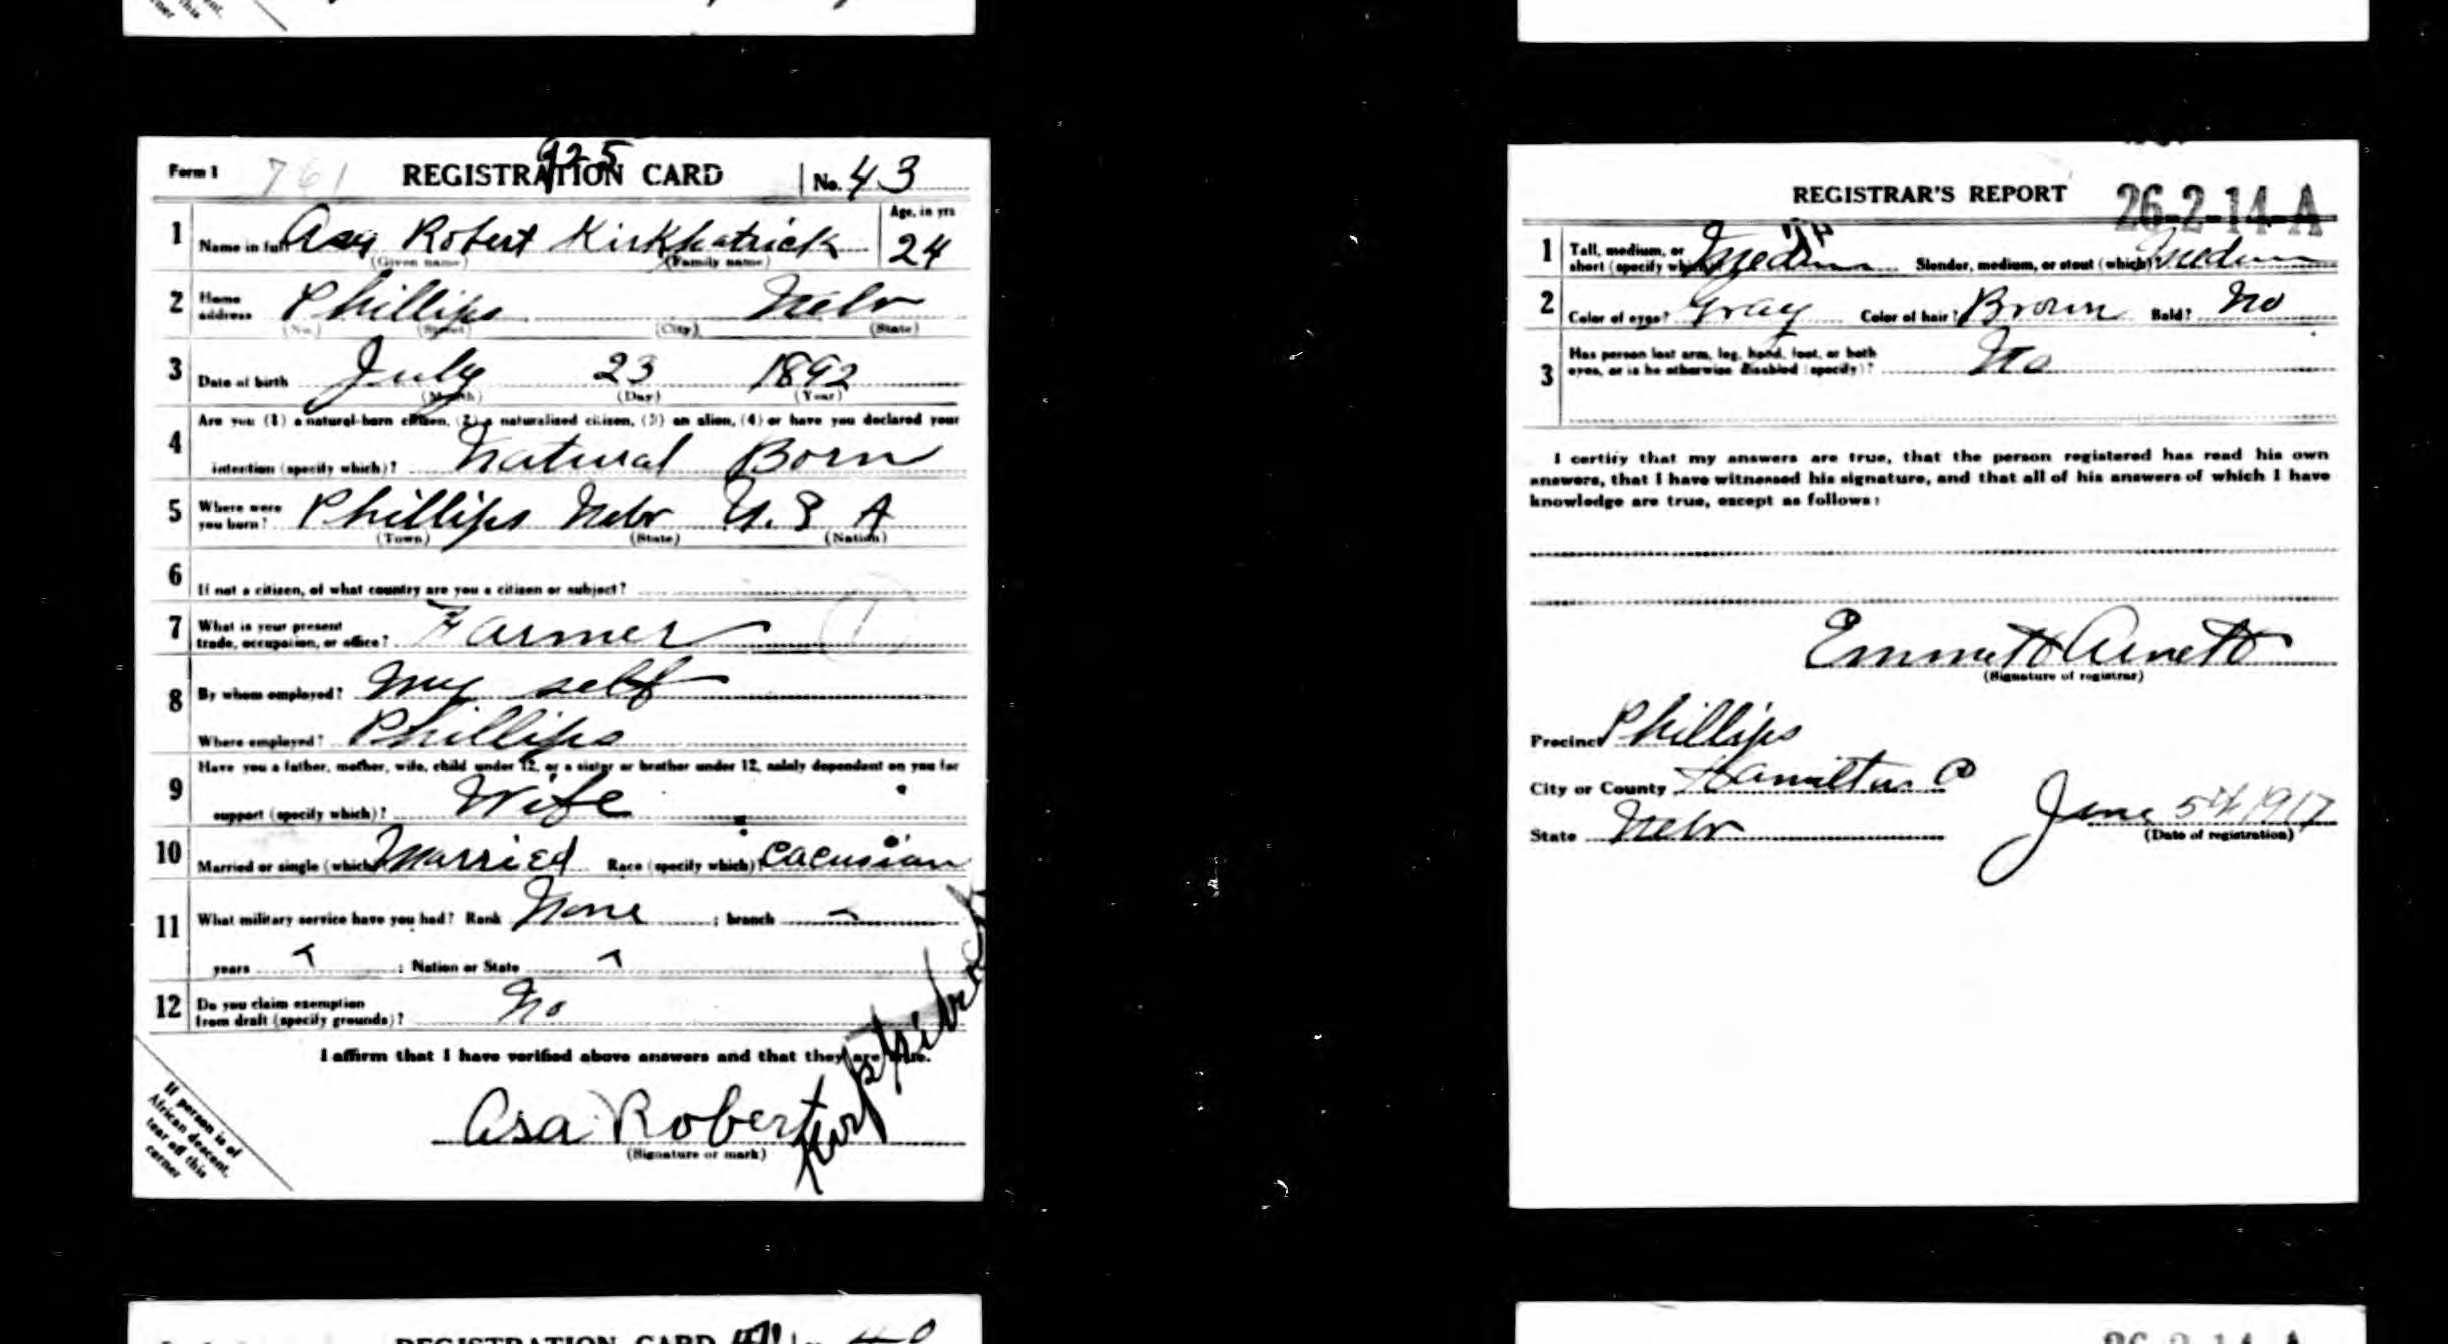 Form 1 761 REGISTRATION CARD 925 No. 43
1 Name in full Asa Robert Kirkpatrick Age, in yrs 24
(Given name) (Family name)
2 Home address Phillips Nebr
(No.) (Street) (City) (State)
3 Date of birth July 23 1892
(Month) (Day) (Year)
4 Are you (1) a natural-born citizen, (2) a naturalized citizen, (3) an alien, (4) or have you declared your
intention (specify which)? Natural Born
5 Where were you born? Phillips Nebr U. S A
(Town) (State) (Nation)
6 If not a citizen, of what country are you a citizen or subject?
7 What is your present
trade, occupation, or office? Farmer 1
8 By whom employed? My self
Where employed? Phillips
9 Have you a father, mother, wife, child under 12, or a sister or brother under 12, solely dependent on you for
support (specify which)? Wife
10 Married or single (which) Married Race (specify which)? Cacusian
11 What military service have you had? Rank None ; branch -
years - ; Nation or State -
12 Do you claim exemption
from draft (specify grounds)? No
I affirm that I have verified above answers and that they are true.
Asa Robert Kirkpatrick
(Signature or mark)
If person is of
African descent,
tear off this
corner
REGISTRAR'S REPORT 26-2-14-A
1 Tall, medium, or
short (specify which) Medium Slender, medium, or stout (which) Medium
2 Color of eyes? Gray Color of hair? Brown Bald? No
3 Has person lost arm, leg, hand, foot, or both
eyes, or is he otherwise disabled (specify)? No
I certify that my answers are true, that the person registered has read his own
answers, that I have witnessed his signature, and that all of his answers of which I have
knowledge are true, except as follows:
Emmett Arnett
(Signature of registrar)
Precinct Phillips
City or County Hamilton Co
State Nebr
June 5th 1917
(Date of registration)
REGISTRATION CARD
26-2-14-A